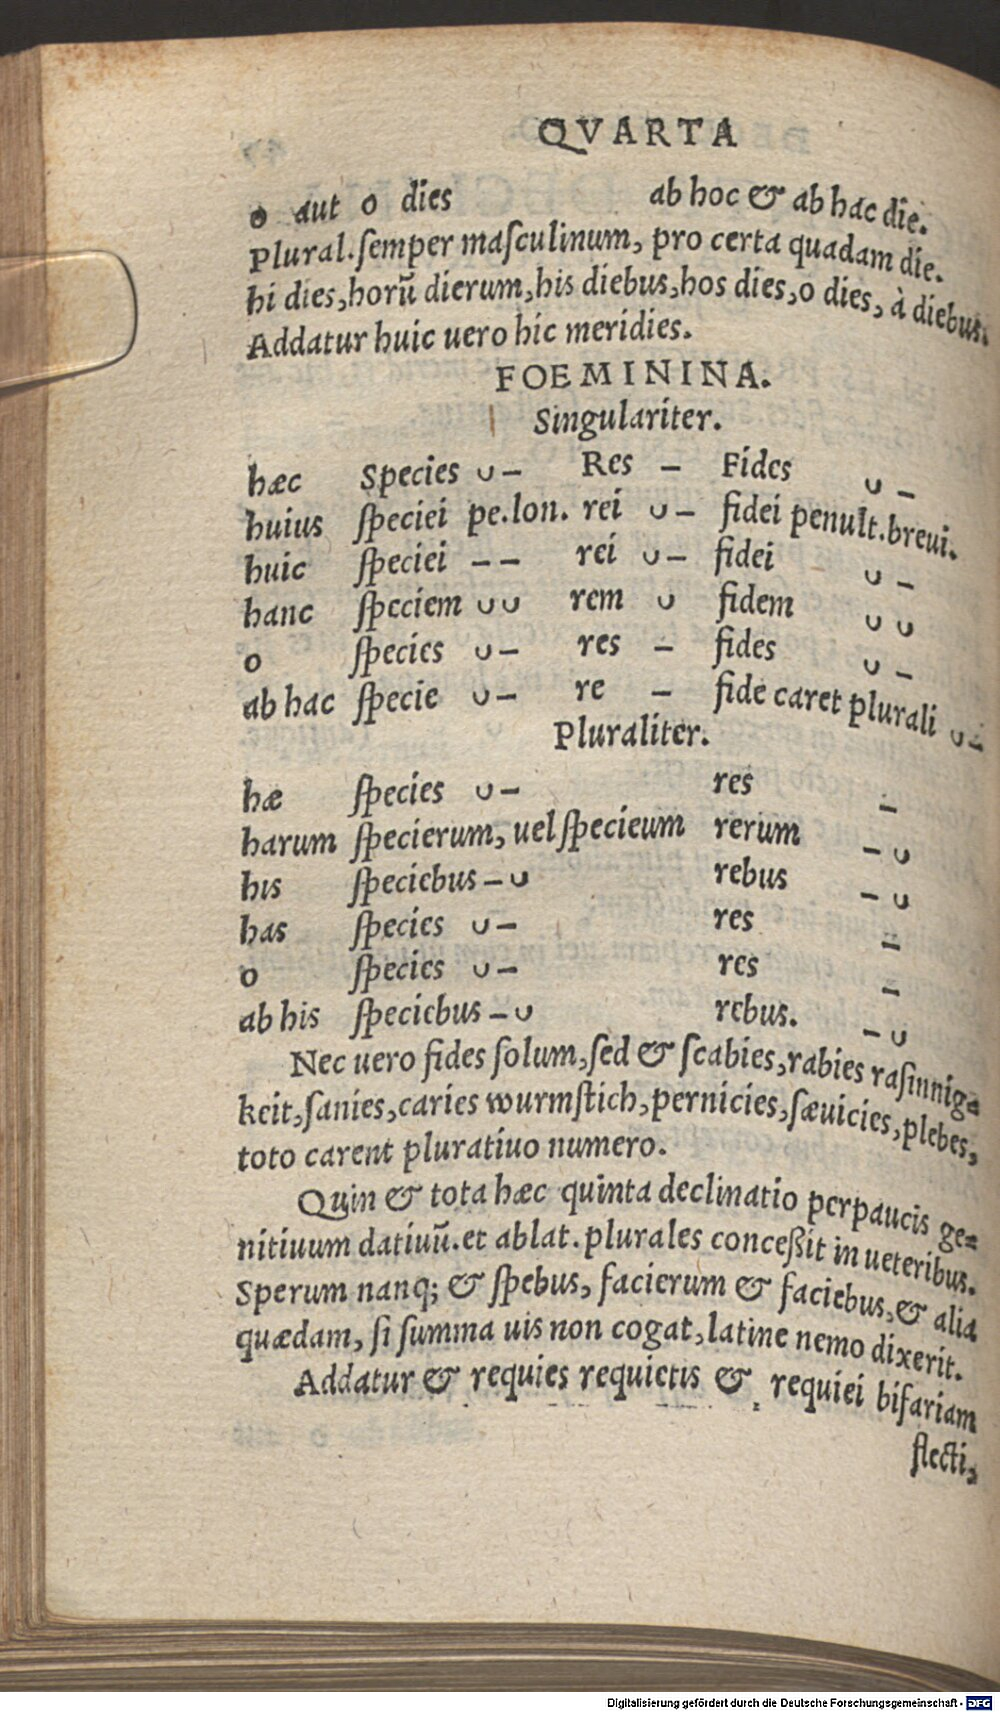 QVARTA
o aut o dies ab hoc & ab hac die.
Plural.ſemper maſculinum, pro certa quadam die.
hi dies,horũ dierum,his diebus,hos dies,o dies, à diebus.
Addatur huic uero hic meridies.
FOEMININA.
Singulariter.
hæc Species ∪ – Res – Fides ∪ –
huius ſpeciei pe.lon. rei ∪ – fidei penult.breui.
huic ſpeciei – – rei ∪ – fidei ∪ –
hanc ſpeciem ∪ ∪ rem ∪ fidem ∪ ∪
o ſpecies ∪ – res – fides ∪ –
ab hac ſpecie ∪ – re – fide caret plurali ∪ –
Pluraliter.
hæ ſpecies ∪ – res –
harum ſpecierum, uel ſpecieum rerum – ∪
his ſpeciebus – ∪ rebus – ∪
has ſpecies ∪ – res –
o ſpecies ∪ – res –
ab his ſpeciebus – ∪ rebus. – ∪
Nec uero fides ſolum,ſed & ſcabies,rabies raſinnig=
keit,ſanies,caries wurmſtich,pernicies,ſæuicies,plebes,
toto carent pluratiuo numero.
Quin & tota hæc quinta declinatio perpaucis ge=
nitiuum datiuũ.et ablat.plurales conceßit in ueteribus.
Sperum nanq; & ſpebus, facierum & faciebus,& alia
quædam, ſi ſumma uis non cogat,latine nemo dixerit.
Addatur & requies requietis & requiei bifariam
flecti,
Digitalisierung gefördert durch die Deutsche Forschungsgemeinschaft - DFG